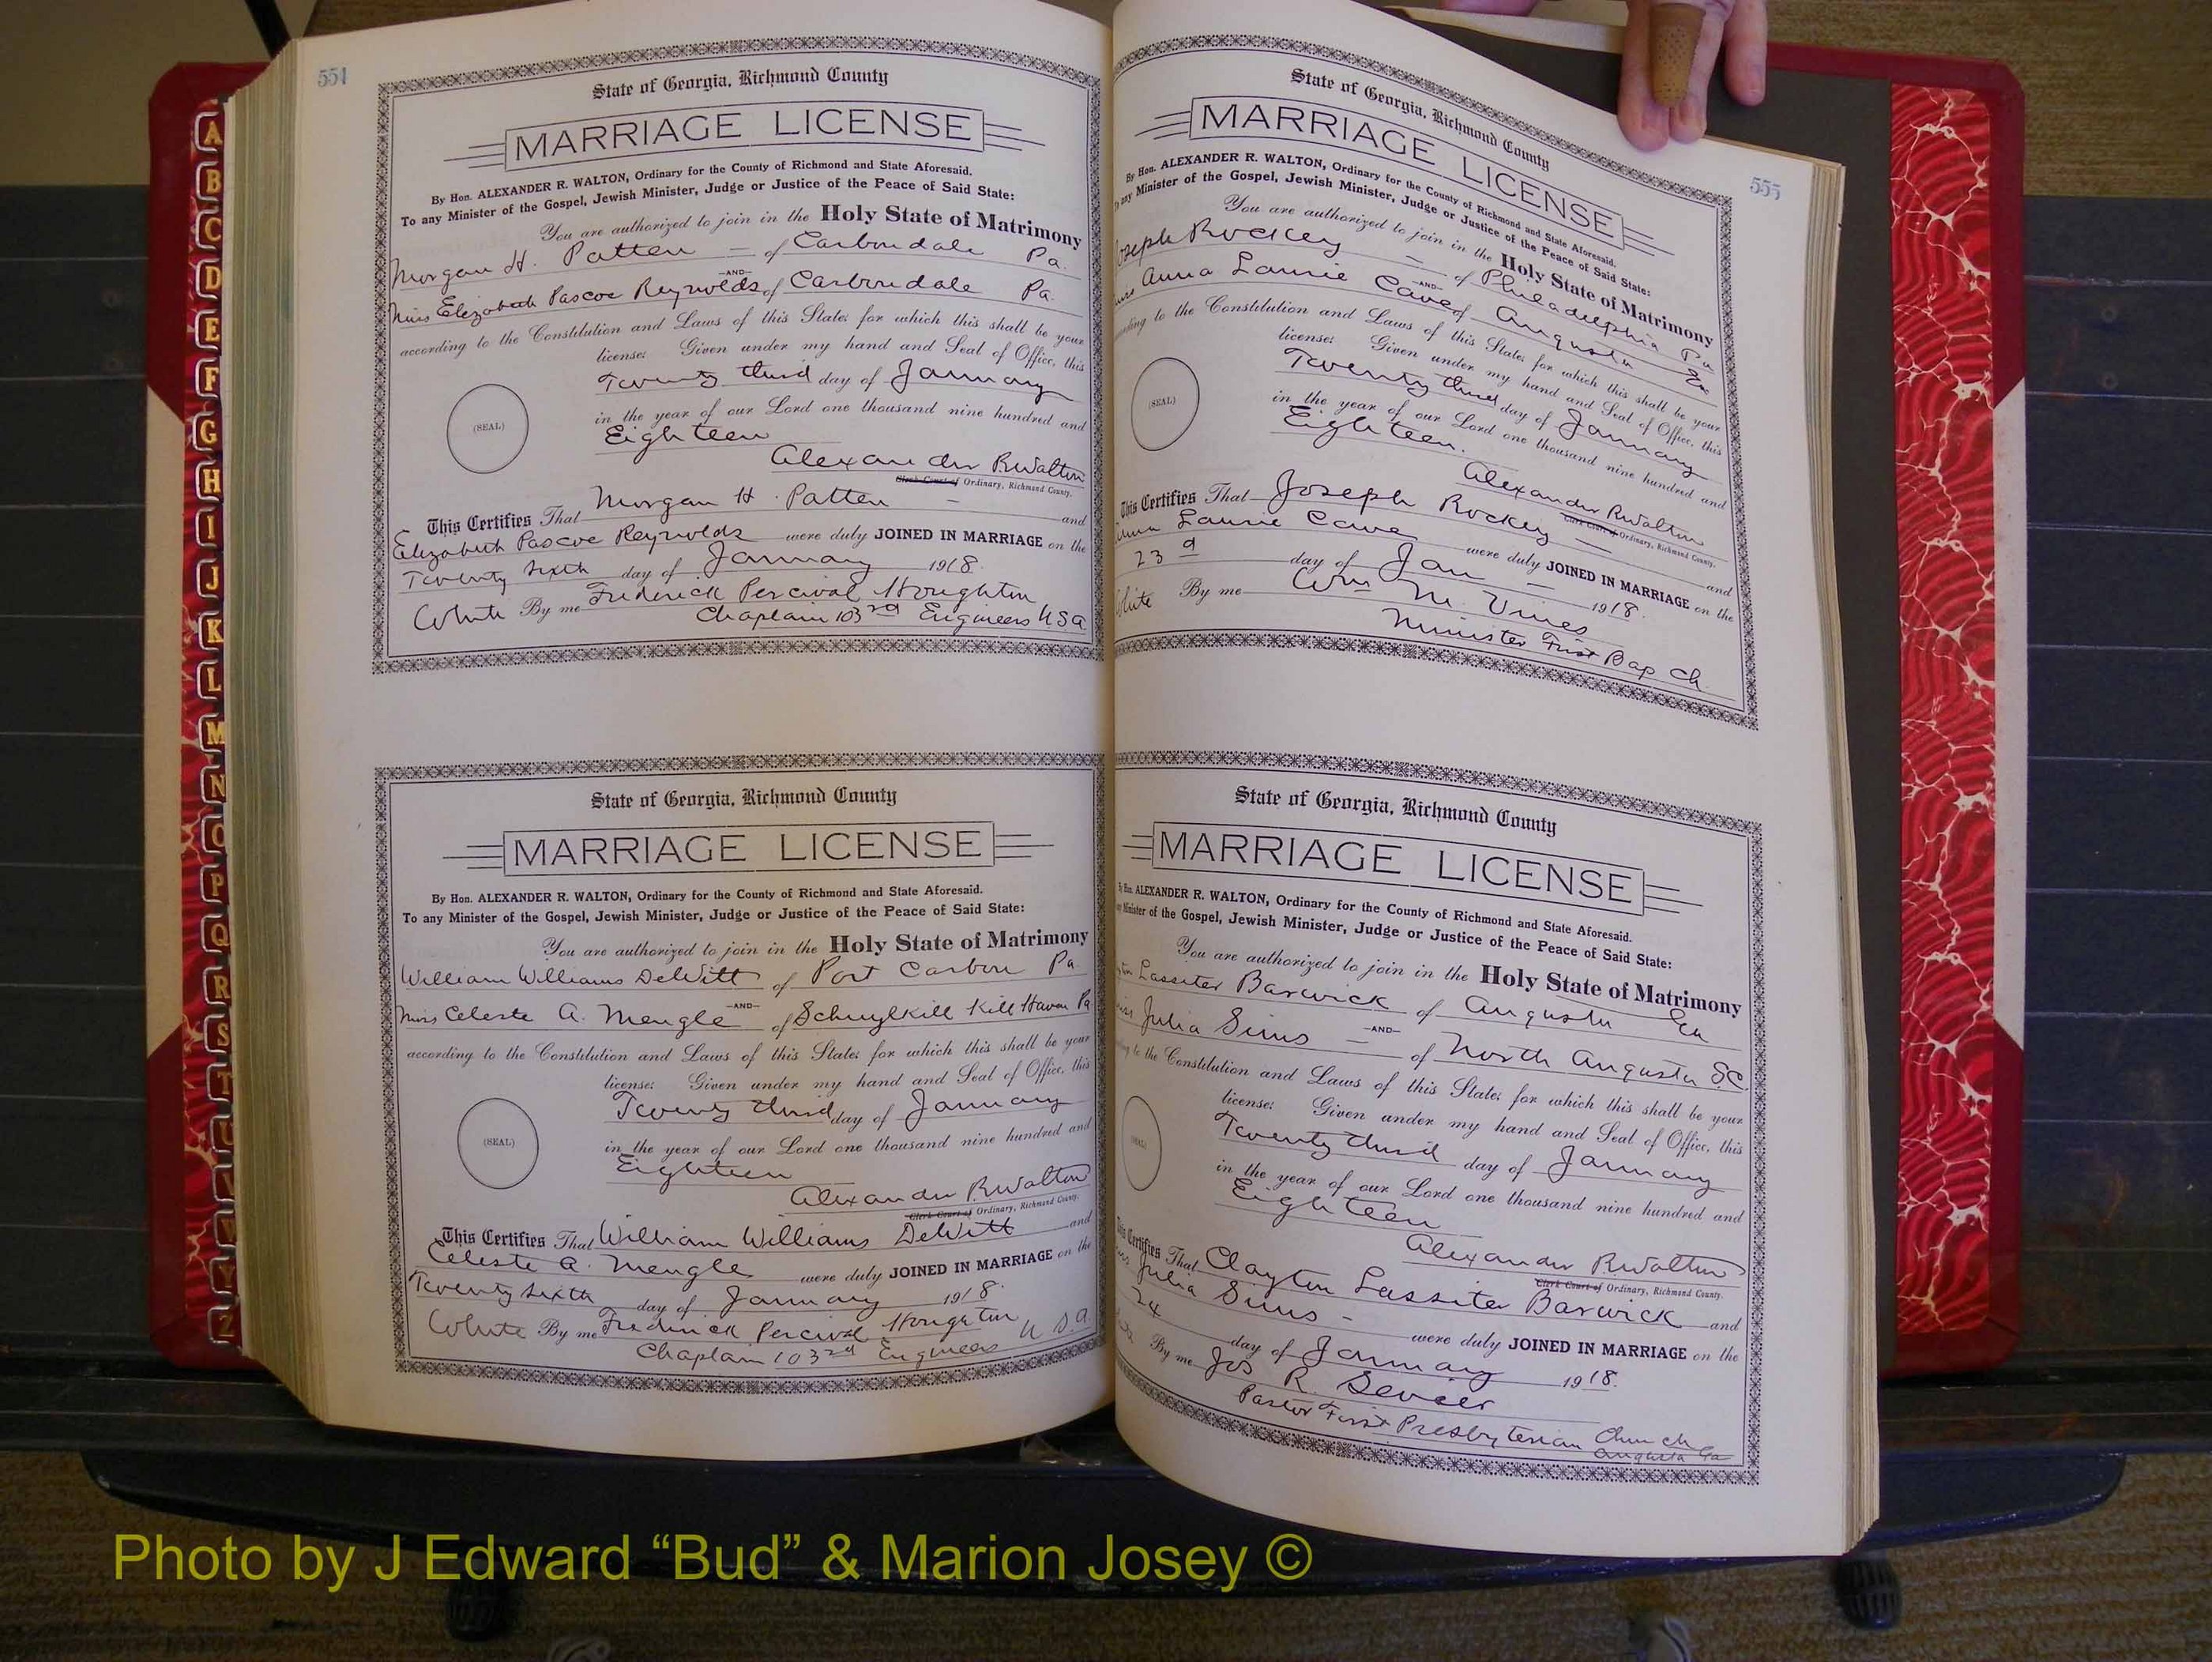 554
State of Georgia, Richmond County
MARRIAGE LICENSE
By Hon. ALEXANDER R. WALTON, Ordinary for the County of Richmond and State Aforesaid.
To any Minister of the Gospel, Jewish Minister, Judge or Justice of the Peace of Said State:
You are authorized to join in the Holy State of Matrimony
Morgan H. Patten — of Carbondale Pa.
—AND—
Miss Elizabeth Pascoe Reynolds of Carbondale Pa.
according to the Constitution and Laws of this State; for which this shall be your
license: Given under my hand and Seal of Office, this
Twenty third day of January
(SEAL)
in the year of our Lord one thousand nine hundred and
Eighteen
Alexander R Walton
Clerk Court of Ordinary, Richmond County.
This Certifies That Morgan H. Patten — and
Elizabeth Pascoe Reynolds were duly JOINED IN MARRIAGE on the
Twenty sixth day of January 1918.
White By me Frederick Percival Houghton
Chaplain 103rd Engineers U.S.A.
State of Georgia, Richmond County
MARRIAGE LICENSE
By Hon. ALEXANDER R. WALTON, Ordinary for the County of Richmond and State Aforesaid.
To any Minister of the Gospel, Jewish Minister, Judge or Justice of the Peace of Said State:
You are authorized to join in the Holy State of Matrimony
William Williams DeWitt of Port Carbon Pa.
—AND—
Miss Celeste A. Mengle of Schuylkill Kill Haven Pa
according to the Constitution and Laws of this State; for which this shall be your
license: Given under my hand and Seal of Office, this
Twenty third day of January
(SEAL)
in the year of our Lord one thousand nine hundred and
Eighteen
Alexander R Walton
Clerk Court of Ordinary, Richmond County.
This Certifies That William Williams DeWitt and
Celeste A. Mengle were duly JOINED IN MARRIAGE on the
Twenty sixth day of January 1918.
White By me Frederick Percival Houghton U.S.A.
Chaplain 103rd Engineers
555
State of Georgia, Richmond County
MARRIAGE LICENSE
By Hon. ALEXANDER R. WALTON, Ordinary for the County of Richmond and State Aforesaid.
any Minister of the Gospel, Jewish Minister, Judge or Justice of the Peace of Said State:
You are authorized to join in the Holy State of Matrimony
Joseph Rockey — of Philadelphia Pa
—AND—
Anna Laurie Cave of Augusta Ga
to the Constitution and Laws of this State; for which this shall be your
license: Given under my hand and Seal of Office, this
Twenty third day of January
(SEAL)
in the year of our Lord one thousand nine hundred and
Eighteen.
Alexander R Walton
Clerk Court of Ordinary, Richmond County.
This Certifies That Joseph Rockey — and
Anna Laurie Cave were duly JOINED IN MARRIAGE on the
23d day of Jan — 1918.
White By me Wm M. Vines
Minister First Bap Ch.
State of Georgia, Richmond County
MARRIAGE LICENSE
By Hon. ALEXANDER R. WALTON, Ordinary for the County of Richmond and State Aforesaid.
any Minister of the Gospel, Jewish Minister, Judge or Justice of the Peace of Said State:
You are authorized to join in the Holy State of Matrimony
Lassiter Barwick of Augusta Ga
—AND—
Julia Sims — of North Augusta S.C.
to the Constitution and Laws of this State; for which this shall be your
license: Given under my hand and Seal of Office, this
Twenty third day of January
(SEAL)
in the year of our Lord one thousand nine hundred and
Eighteen
Alexander R Walton
Clerk Court of Ordinary, Richmond County.
This Certifies That Clayton Lassiter Barwick and
Julia Sims — were duly JOINED IN MARRIAGE on the
24 day of January 1918.
By me Jos R. Sevier
Pastor First Presbyterian Church
Augusta Ga
A
B
C
D
E
F
G
H
I
J
K
L
M
N
O
P
Q
R
S
T
U
V
W
Y
Z
Photo by J Edward “Bud” & Marion Josey ©